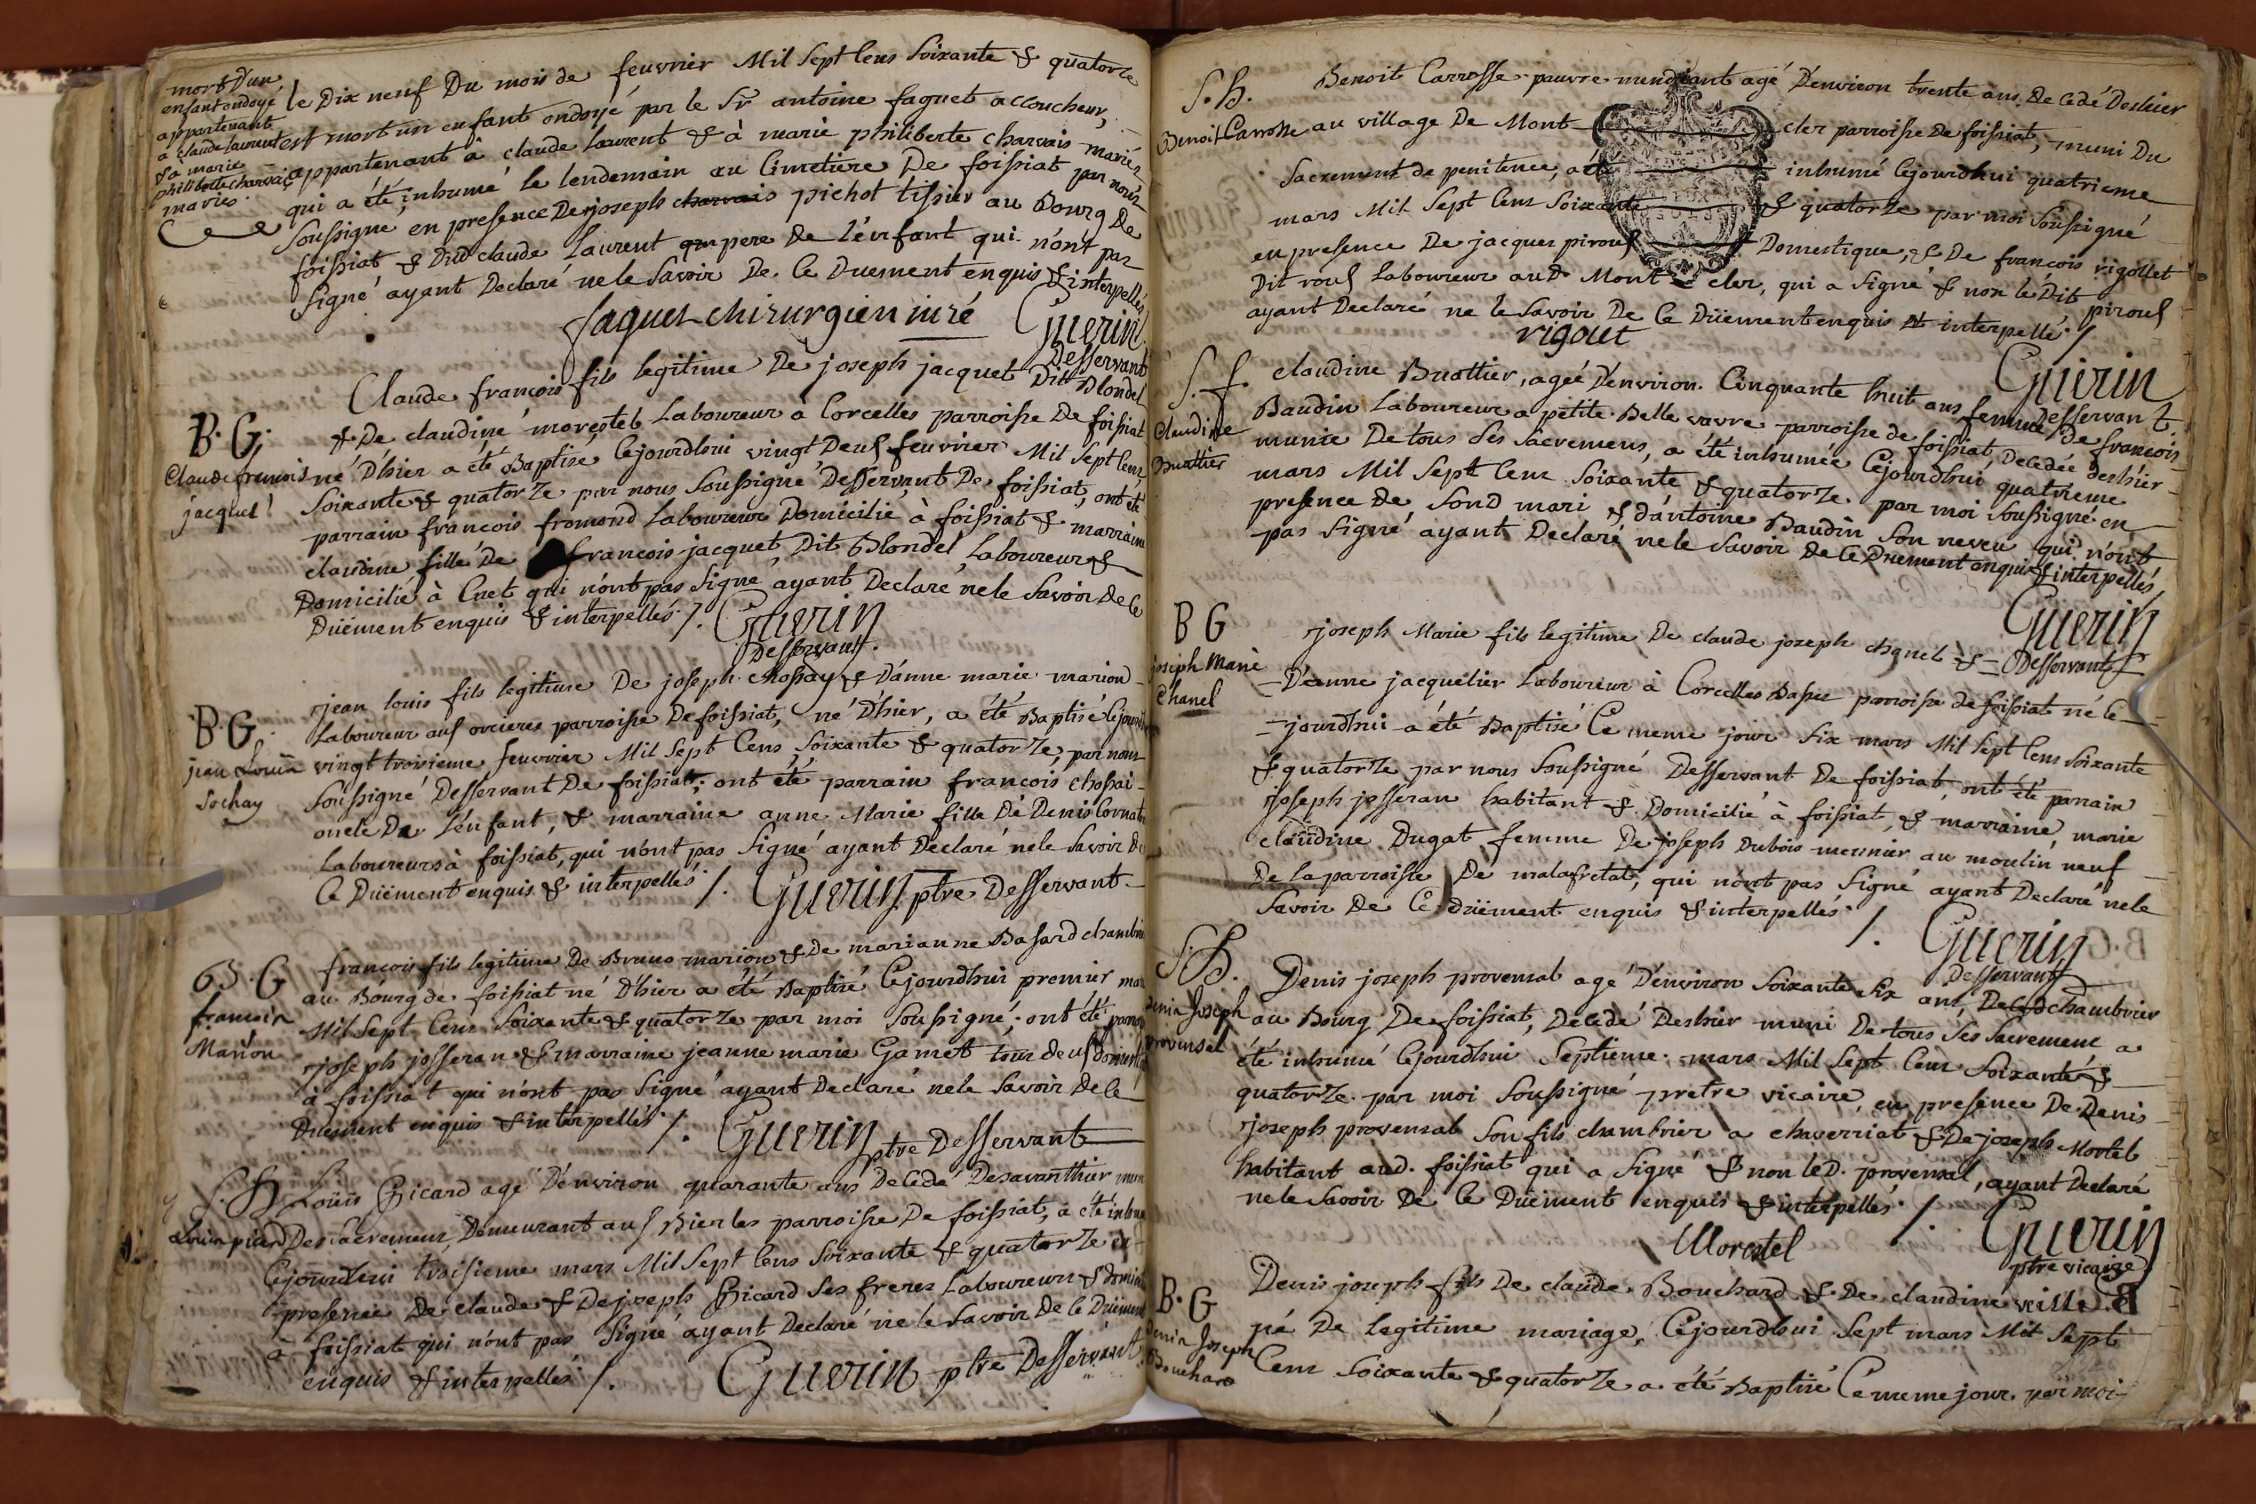 mort d'un
enfant ondoyé
appartenant
a Claude Laurent
& a marie
philiberte charvais
mariés
le Dix neuf Du mois de feuvrier Mil Sept Cens Soixante & quatorze
est mort un enfant ondoyé par le Sr antoine faguet accoucheur,
appartenant à claude Laurent & à marie philiberte charvais mariés
qui a été inhumé le lendemain au Cimetiere De foissiat par nous
Soussigné, en presence De joseph charvais pichot tissier au Bourg De
foissiat & Dud claude Laurent pere de L'enfant qui n'ont pas
Signé ayant Declaré ne le Savoir De Ce Duement enquis & interpellés
faguet chirurgien juré Guerin
Desservant
B. G.
Claude francois
jacquet
Claude françois fils legitime De joseph jacquet Dit Blondel
& De claudine morestel Laboureur à Corcelles parroisse De foissiat
né D'hier a été Baptisé Cejourdhui vingt Deux feuvrier Mil Sept Cens
Soixante & quatorze par nous Soussigné Desservant De foissiat, ont été
parrain francois fromond Laboureur Domicilié à foissiat & marraine
claudine fille De francois jacquet Dit Blondel Laboureur &
Domicilié à Cuet qui n'ont pas Signé ayant Declaré ne le Savoir De Ce
Duëment enquis & interpellés /. Guerin
Desservant.
B. G.
jean Louis
Sochay
jean louis fils legitime De joseph chossay & D'anne marie marion
Laboureur aux orcieres parroisse De foissiat, né D'hier, a été Baptisé Cejourd'hui
vingt troisieme feuvrier Mil Sept Cens Soixante & quatorze, par nous
Soussigné Desservant De foissiat; ont été parrain francois chossai
oncle De L'enfant, & marraine anne Marie fille De Denis Cornaton
Laboureurs à foissiat, qui n'ont pas Signé ayant Declaré ne le Savoir De
Ce Duëment enquis & interpellés /. Guerin ptre Desservant
B. G
francois
Marion
francois fils legitime De Bruno marion & De marianne Basard chambrier
au Bourg de foissiat né D'hier a été Baptisé Cejourdhui premier mars
Mil Sept Cens Soixante & quatorze par moi Soussigné; ont été parrain
joseph josseran & marraine jeanne marie Gamet tous deux domestiques
à foissiat qui n'ont pas Signé ayant Declaré ne le Savoir De Ce
Duement enquis & interpellés /. Guerin
ptre Desservant
S. H.
Louis picard
Louis Picard agé D'environ quarante ans Decedé Desavanthier muni
Des Sacremens, Demeurant aux Bierles parroisse De foissiat, a été inhumé
Cejourdhui troisieme mars Mil Sept Cens Soixante & quatorze en
presence De claude & De joseph Picard Ses freres Laboureurs & domiciliés
à foissiat qui n'ont pas Signé ayant Declaré ne le Savoir De Ce Duement
enquis & interpellés /. Guerin ptre Desservant
S. H.
Benoit Carrosse
Benoit Carrosse pauvre mendiant agé D'environ trente ans Decedé Deshier
au village De Mont cler parroisse De foissiat, muni Du
Sacrement de penitence, a été inhumé Cejourdhui quatrieme
mars Mil Sept Cens Soixante & quatorze par moi Soussigné
en presence De jacques piroux Domestique, & De francois rigollet
Dit roux Laboureur aud. Mont cler, qui a Signé & non le Dit piroux
ayant Declaré ne le Savoir De Ce Duëment enquis & interpellé /.
rigolet Guerin
Desservant
S. f.
Claudine
Buattier
claudine Buattier, agée D'environ Cinquante huit ans femme De francois
Baudin Laboureur a petite Belle vavre parroisse de foissiat, Decedée deshier
munie De tous Ses Sacremens, a été inhumée Cejourdhui quatrieme
mars Mil Sept Cens Soixante & quatorze par moi Soussigné en
presence De Sond mari & d'antoine Baudin Son neveu qui n'ont
pas Signé ayant Declaré ne le Savoir De Ce Duement enquis & interpellés
Guerin
Desservant
B G
joseph Marie
Chanel
joseph Marie fils legitime De claude joseph chanel &
D'anne jacquelier Laboureur à Corcelles Basses parroisse de foissiat né Ce
jourdhui a été Baptisé Ce meme jour Six mars Mil Sept Cens Soixante
& quatorze par nous Soussigné Desservant De foissiat, ont été parrain
joseph josseran habitant & Domicilié à foissiat, & marraine marie
claudine Dugat femme De joseph Dubois meunier au moulin neuf
De la parroisse De malafretat, qui n'ont pas Signé ayant Declaré ne le
Savoir De Ce duëment enquis & interpellés /.
Guerin
Desservant
S. H.
Denis Joseph
provensal
Denis joseph provensal agé D'environ Soixante Six ans, chambrier
au Bourg De foissiat, Decedé Deshier muni De tous Ses Sacremens a
été inhumé Cejourdhui Septieme mars Mil Sept Cens Soixante &
quatorze par moi Soussigné pretre vicaire, en presence De Denis
joseph provensal Son fils chambrier a chaverriat & De joseph Mortel
habitant aud. foissiat qui a Signé & non led. provensal, ayant Declaré
ne le Savoir De Ce Duëment enquis & interpellés /.
Morestel Guerin
ptre vicaire
B. G
Denis Joseph
Bouchard
Denis joseph fils De claude Bouchard & De claudine veille
né De legitime mariage, Cejourdhui Sept mars Mil Sept
Cens Soixante & quatorze a été Baptisé Ce meme jour par moi